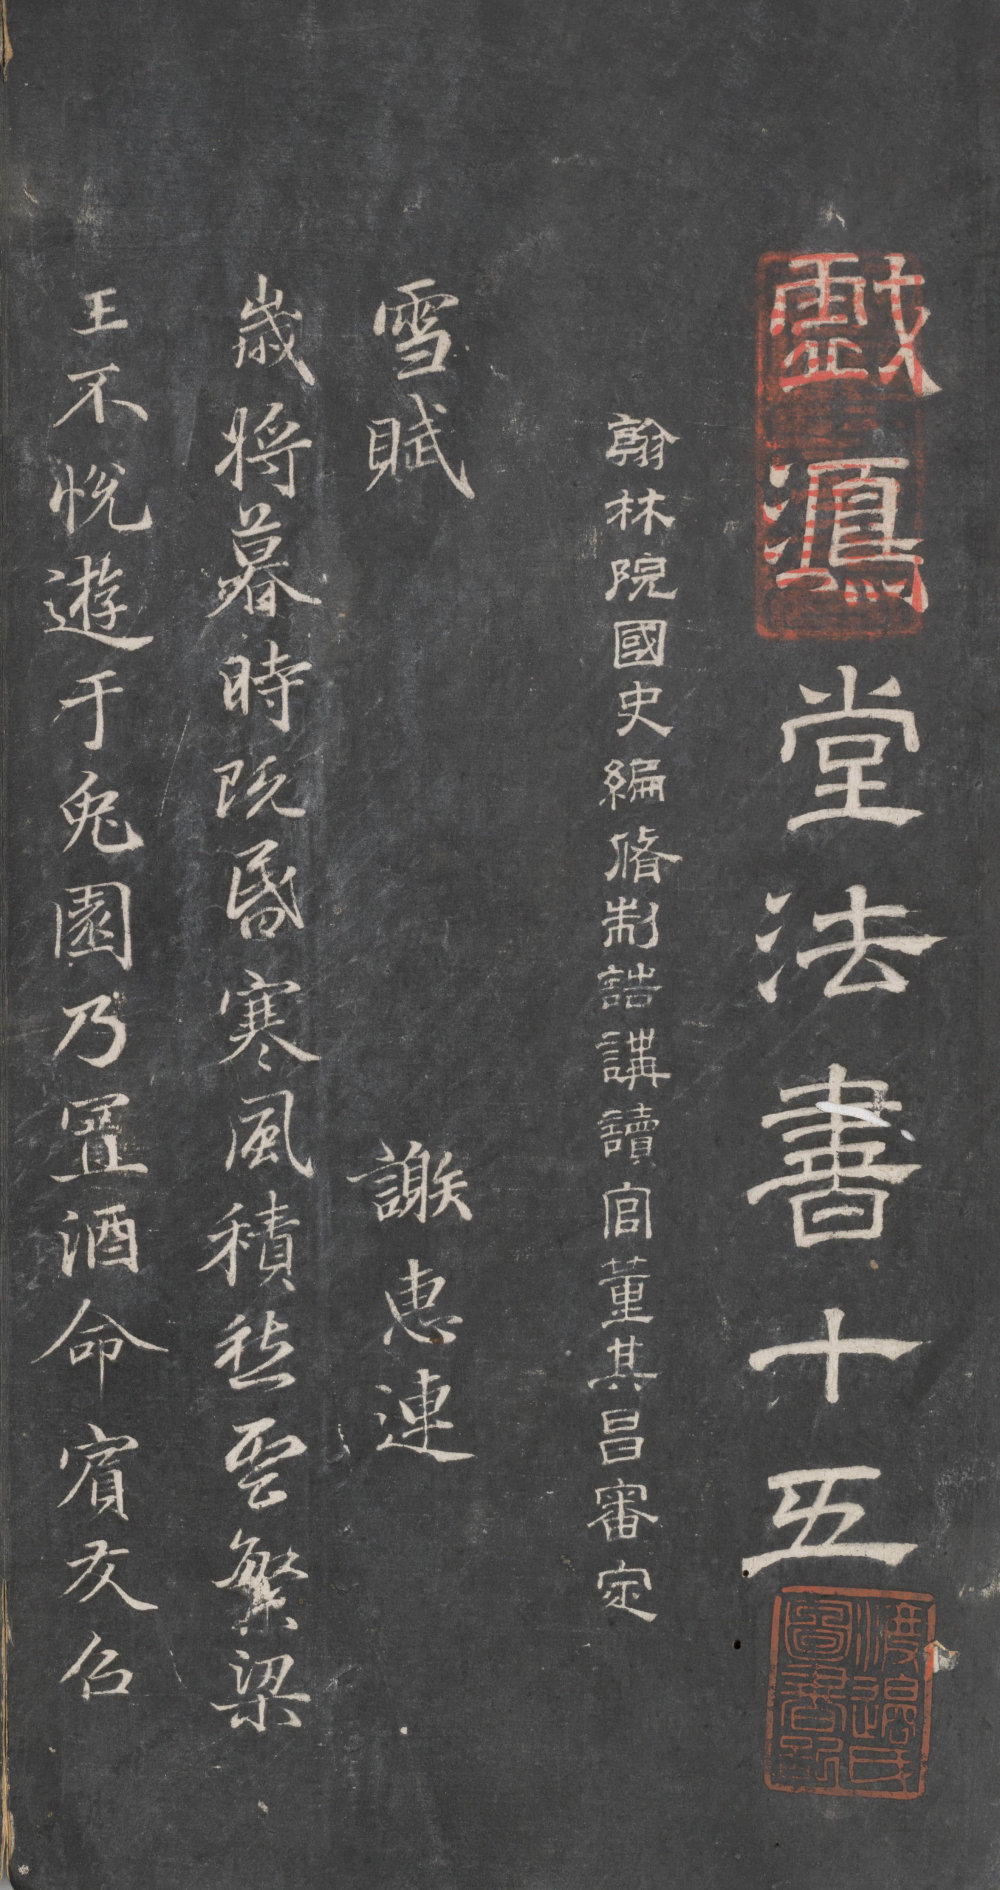 戲鴻堂法書十五
翰林院國史編脩制誥講讀官董其昌審定
雪賦 謝惠連
歲將暮時既昏寒風積愁雲繁梁
王不悅遊于兔園乃置酒命賓友召
渡邊氏圖書記